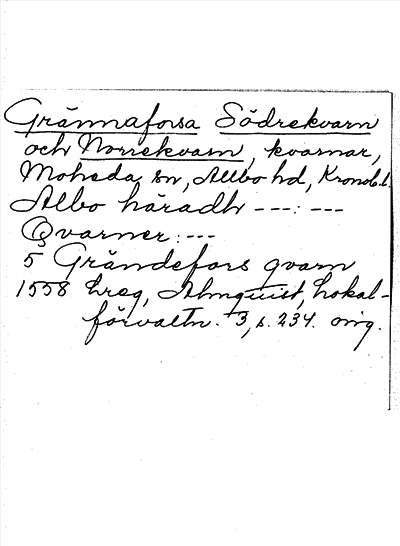 Grännaforsa Södrekvarn
och Norrekvarn, kvarnar,
Moheda sn, Allbo hd, Kronob.l.
Albo häradh ---:---
Qvarner:---
5 Grändefors qvarn
1558 breg, Almquist, Lokal-
förvaltn. 3, s. 234. orig.